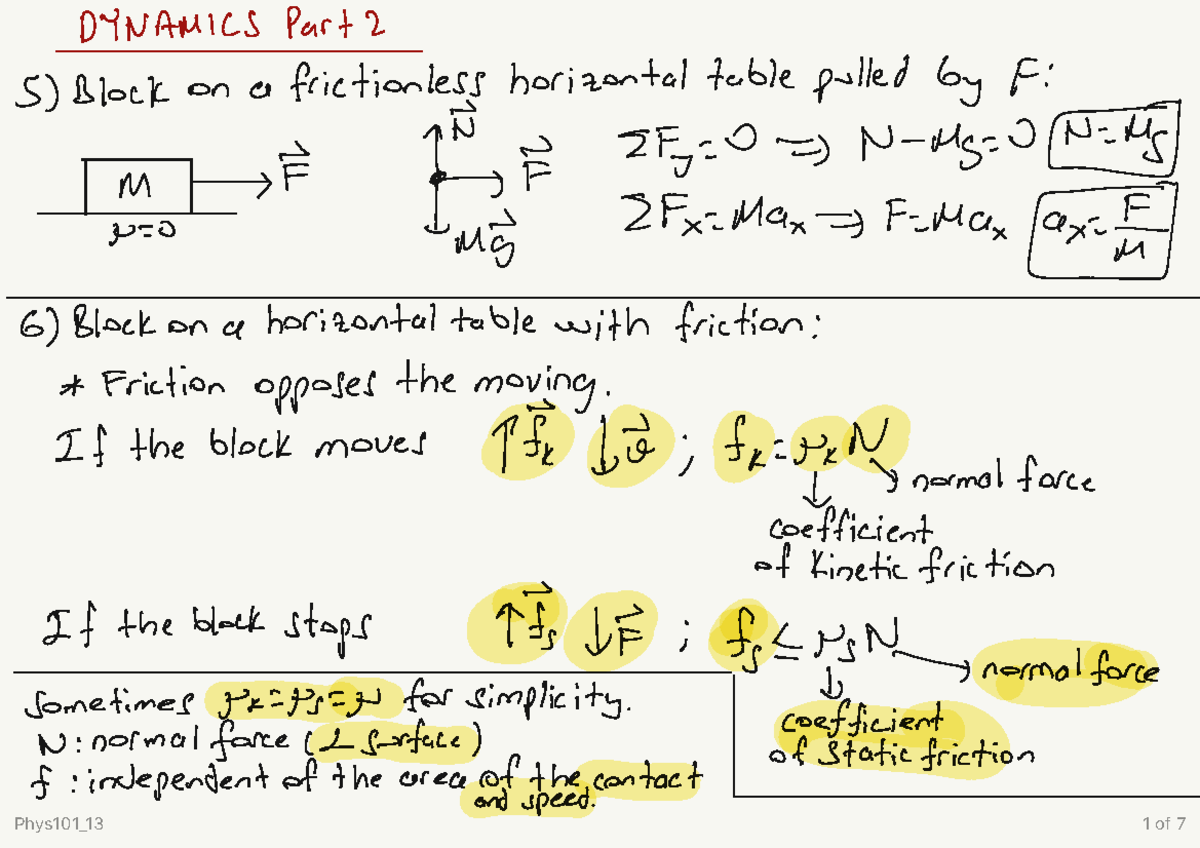 DYNAMICS Part 2
5) Block on a frictionless horizontal table pulled by F:
M
F⃗
μ=0
N⃗
F⃗
Mg⃗
ΣFy=0 ⇒ N-Mg=0 N=Mg
ΣFx=Max ⇒ F=Max ax=F/M
6) Block on a horizontal table with friction:
* Friction opposes the moving.
If the block moves ↑f⃗k ↓v⃗ ; fk=μkN
normal force
coefficient
of kinetic friction
If the block stops ↑f⃗s ↓F⃗ ; fs≤μsN
normal force
coefficient
of static friction
Sometimes μk=μs=μ for simplicity.
N: normal force (⊥ surface)
f : independent of the area of the contact
and speed.
Phys101_13
1 of 7